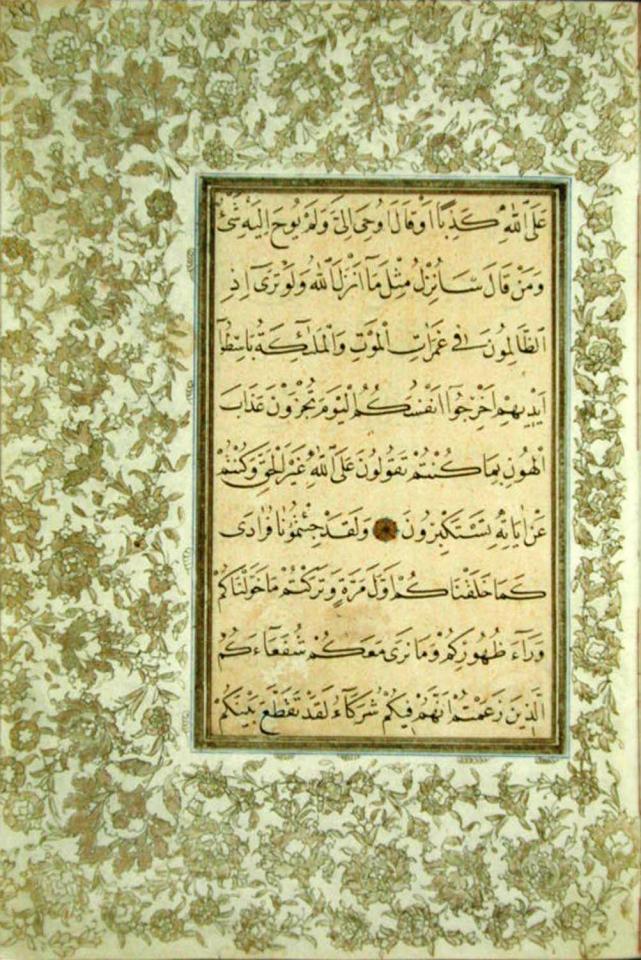 عَلَى اللّٰهِ كَذِبًا اَوْ قَالَ اُوحِىَ اِلَىَّ وَلَمْ يُوحَ اِلَيْهِ شَىْءٌ
وَمَنْ قَالَ سَاُنْزِلُ مِثْلَ مَآ اَنْزَلَ اللّٰهُ وَلَوْ تَرٰٓى اِذِ
الظَّالِمُونَ فِى غَمَرَاتِ الْمَوْتِ وَالْمَلٰٓئِكَةُ بَاسِطُوٓا
اَيْدِيهِمْ اَخْرِجُوٓا اَنْفُسَكُمُ الْيَوْمَ تُجْزَوْنَ عَذَابَ
الْهُونِ بِمَا كُنْتُمْ تَقُولُونَ عَلَى اللّٰهِ غَيْرَ الْحَقِّ وَكُنْتُمْ
عَنْ اٰيَاتِهِ تَسْتَكْبِرُونَ وَلَقَدْ جِئْتُمُونَا فُرَادٰى
كَمَا خَلَقْنَاكُمْ اَوَّلَ مَرَّةٍ وَتَرَكْتُمْ مَا خَوَّلْنَاكُمْ
وَرَآءَ ظُهُورِكُمْ وَمَا نَرٰى مَعَكُمْ شُفَعَآءَكُمُ
الَّذِينَ زَعَمْتُمْ اَنَّهُمْ فِيكُمْ شُرَكَآءُ لَقَدْ تَقَطَّعَ بَيْنَكُمْ